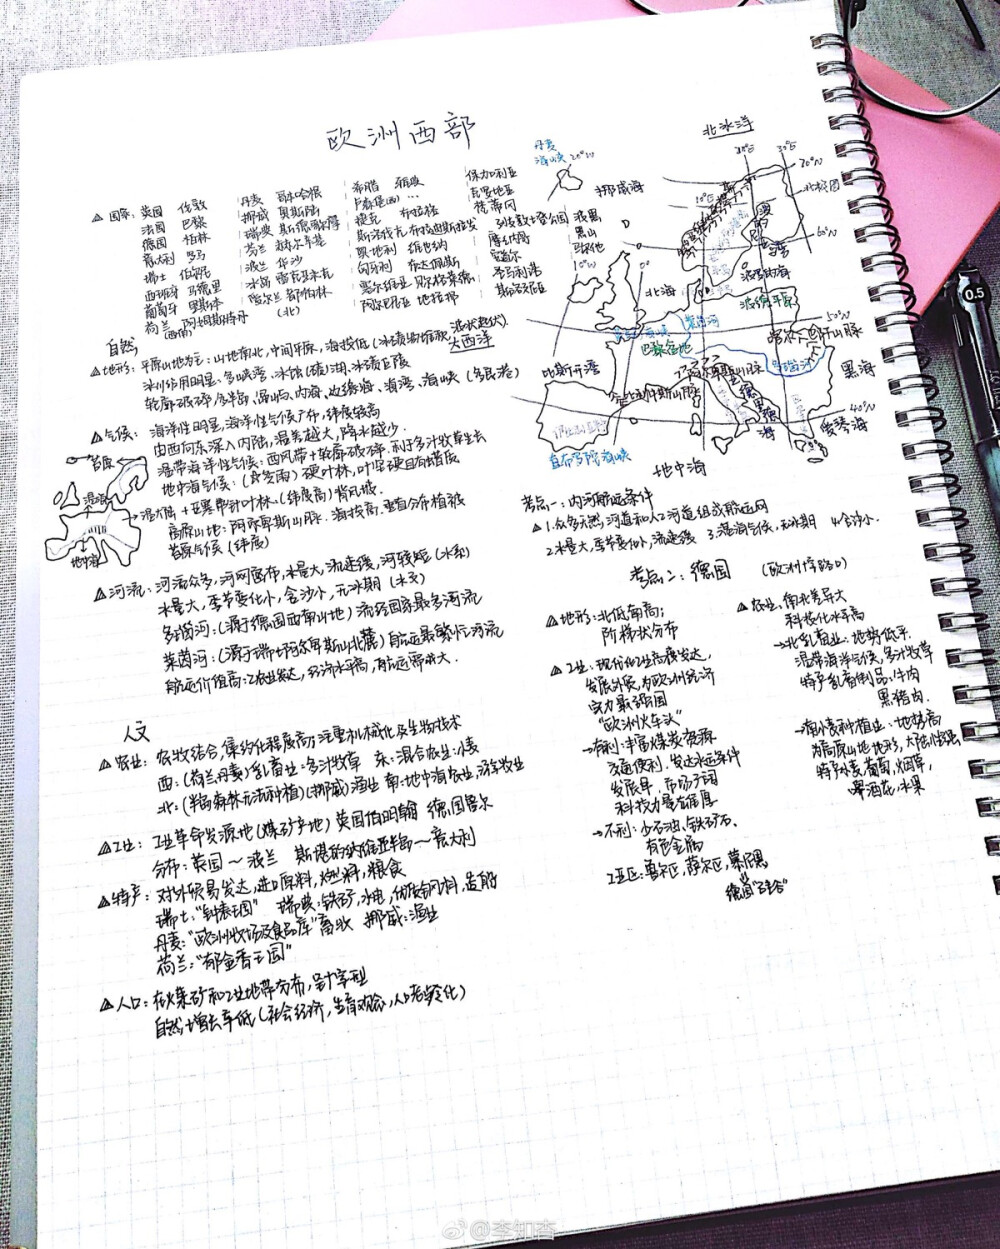 欧洲西部
△ 国家: 英国 伦敦 丹麦 哥本哈根 希腊 雅典 保加利亚
法国 巴黎 挪威 奥斯陆 克罗地亚
德国 柏林 瑞典 斯德哥尔摩 捷克 布拉格 梵蒂冈
意大利 罗马 芬兰 赫尔辛基 斯洛伐克 布拉迪斯拉发 列支敦士登公国
瑞士 伯尔尼 波兰 华沙 奥地利 维也纳 摩纳哥
西班牙 马德里 冰岛 雷克雅未克 匈牙利 布达佩斯
葡萄牙 里斯本 爱尔兰 都柏林 塞尔维亚 贝尔格莱德 圣马力诺
荷兰 阿姆斯特丹 阿尔巴尼亚 地拉那
自然
△ 地形: 平原山地为主: 山地南北, 中间平原, 海拔低
冰川作用明显: 多峡湾
轮廓破碎: 多半岛、岛屿、内海、边缘海、海湾、海峡
△ 气候: 海洋性明显, 海洋性气候广布, 纬度较高
由西向东深入内陆, 温差越大, 降水越少.
温带海洋性气候: 西风带+轮廓破碎. 利于多汁牧草生长
地中海气候: 硬叶林, 叶坚硬且有蜡质
高原山地: 阿尔卑斯山脉. 海拔高, 垂直分布植被
苔原气候 (纬度)
苔原
温海
地中海
△ 河流: 河流众多, 河网密布, 水量大, 流速缓, 河较短 (水系)
水量大, 季节变化小, 含沙小, 无冰期 (水文)
多瑙河: (源于德国西南山地) 流经国家最多河流
莱茵河: (源于瑞士阿尔卑斯山北麓) 航运最繁忙河流
航运价值高: 工农业发达, 经济水平高, 航运需求大.
人文
△ 农业: 农牧结合, 集约化程度高, 注重机械化及生物技术
西: (荷兰丹麦) 乳畜业: 多汁牧草 东: 混合农业: 小麦
北: (挪威) 渔业 南: 地中海农业, 游牧业
△ 工业: 工业革命发源地 (煤矿产地) 英国伯明翰 德国鲁尔
分布: 英国~波兰 斯堪的纳维亚半岛~意大利
△ 特产: 对外贸易发达, 进口原料, 燃料, 粮食
瑞士: "钟表王国" 瑞典: 铁矿, 水电, 优质钢料, 造船
丹麦: "欧洲牧场及食品库" 畜牧 挪威: 渔业
荷兰: "郁金香王国"
△ 人口: 在煤矿和工业地带分布, 呈十字型
自然增长率低 (社会经济, 生育观念, 人口老龄化)
北冰洋
丹麦海峡
20°W
挪威海
30°E
70°N
北极圈
60°N
10°W
0°
北海
波罗的海
波德平原
50°N
大西洋
莱茵河
巴黎盆地
喀尔巴阡山脉
比斯开湾
阿尔卑斯山脉
多瑙河
黑海
比利牛斯山脉
40°N
爱琴海
直布罗陀海峡
地中海
考点一: 内河航运条件
△ 1.众多天然河道和人工河道组成航运网
2.水量大, 季节变化小, 流速缓 3.温海气候, 无冰期 4.含沙小.
考点2: 德国 (欧洲十字路口)
△ 地形: 北低南高;
阶梯状分布
△ 工业: 现代化工业高度发达,
发展外贸, 为欧洲经济
实力最强国
"欧洲火车头"
→有利: 丰富煤炭资源
交通便利, 发达水运条件
发展早, 市场广阔
科技力量雄厚
→不利: 少石油、铁矿石.
有色金属
工业区: 鲁尔区, 萨尔区, 慕尼黑
德国"硅谷"
△ 农业: 南北差异大
科技化水平高
→北乳畜业: 地势低平.
温带海洋气候, 多汁牧草
特产乳畜制品, 牛肉
黑猪肉.
→南情种植业: 地势高
为高原山地地形, 大陆性强
特产小麦, 葡萄, 烟草,
啤酒花, 水果
0.5
@李知杏